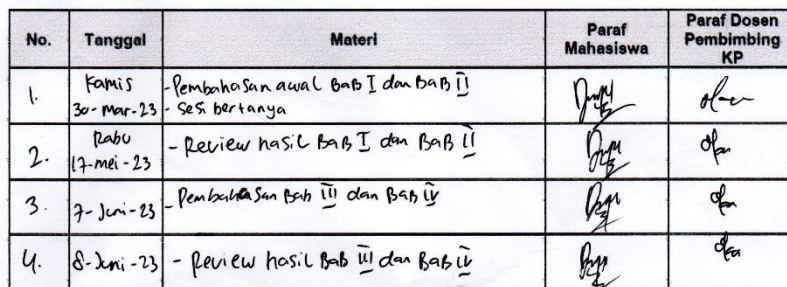 No. Tanggal Materi Paraf Mahasiswa Paraf Dosen Pembimbing KP
1. Kamis 30-Mar-23 -Pembahasan awal BaB I dan BaB II
- Sesi bertanya
2. Rabu 17-mei-23 - Review hasil BaB I dan BaB II
3. 7-Juni-23 -Pembahasan Bab III dan BaB IV
4. 8-Juni-23 - Review hasil BaB III dan BaB IV